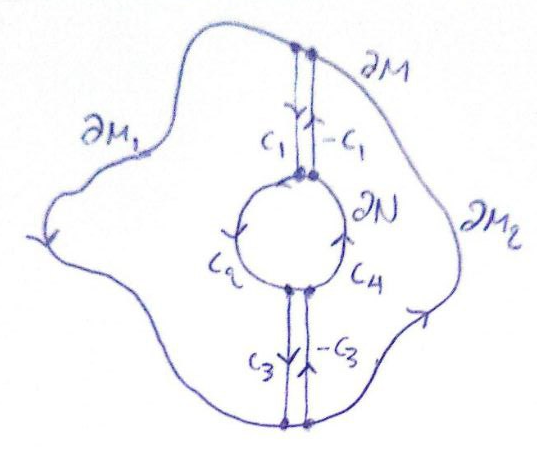 ∂M
∂M₁
C₁
-C₁
∂N
∂M₂
C₂
C₄
C₃
-C₃